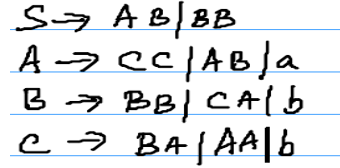 S → AB|BB
A → CC|AB|a
B → BB|CA|b
C → BA|AA|b